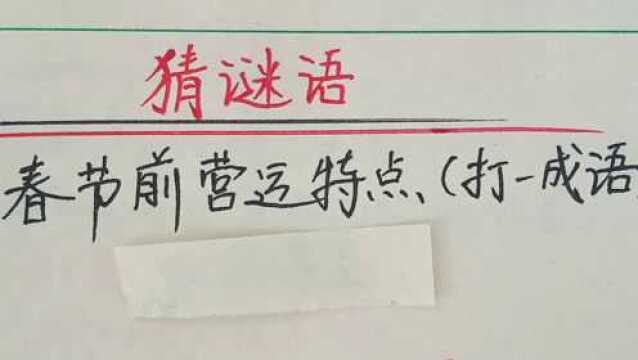 猜谜语
春节前营运特点(打一成语